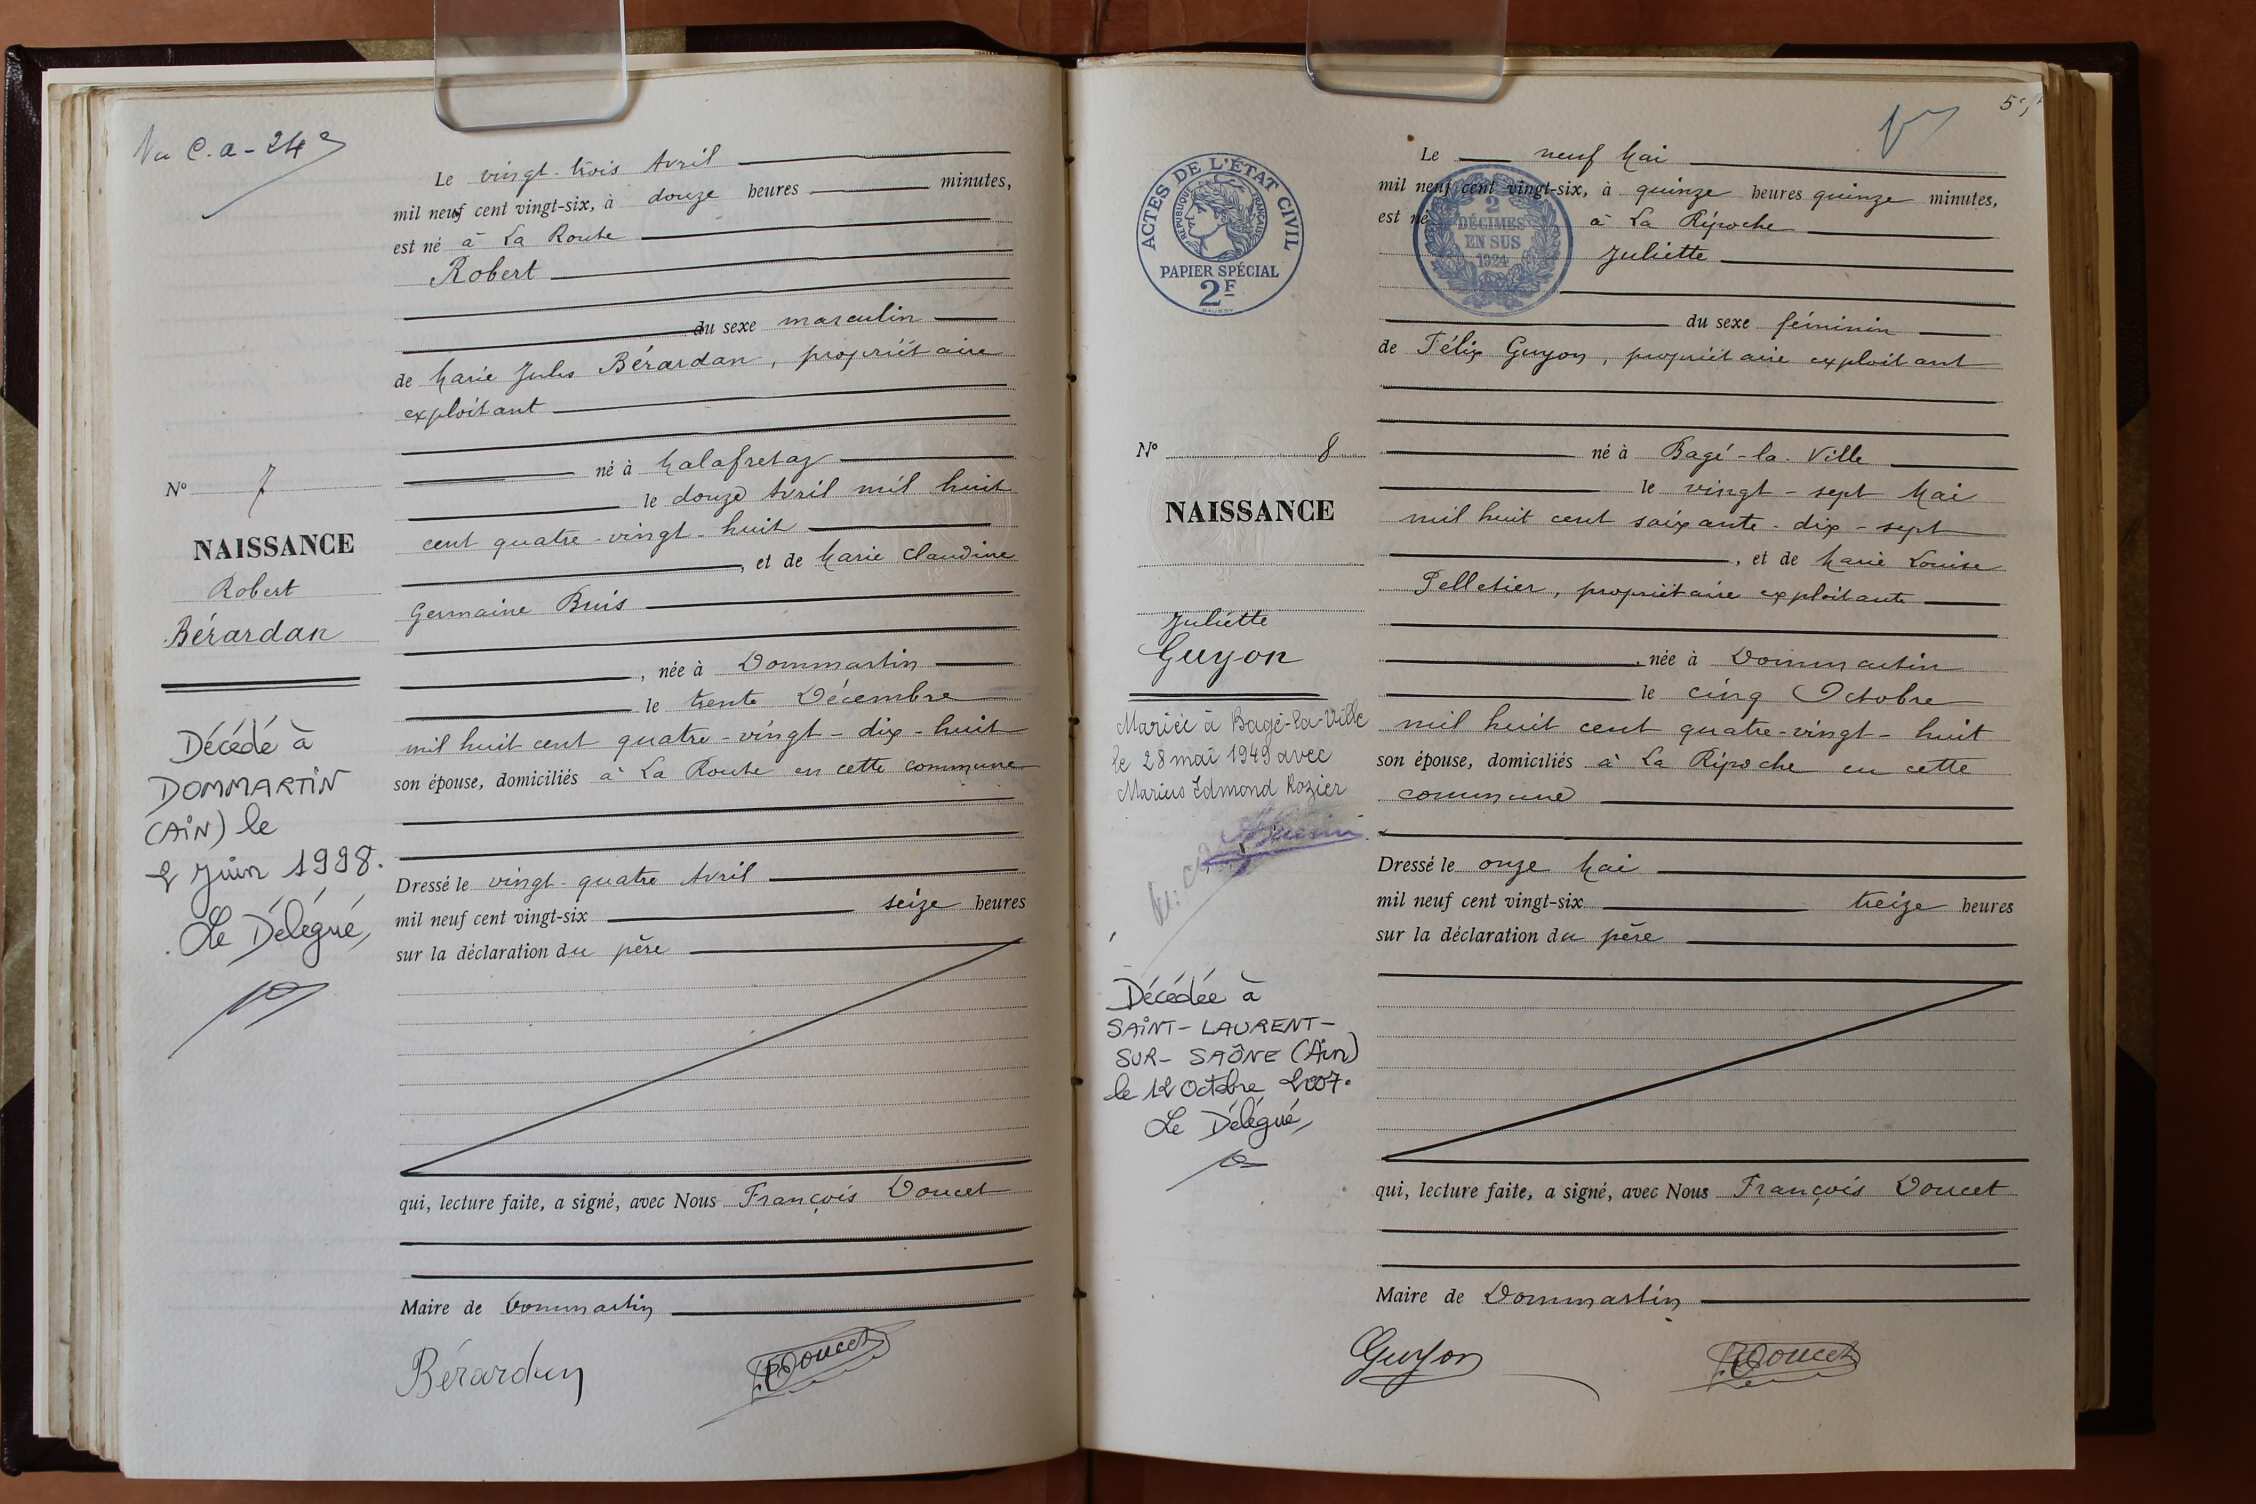 Vu C.a - 24
Le vingt-trois Avril
mil neuf cent vingt-six, à douze heures minutes,
est né à La Route
Robert
du sexe masculin
de Marie Jules Bérardan, propriétaire
exploitant
né à Malafretaz
le douze Avril mil huit
cent quatre-vingt-huit
, et de Marie Claudine
Germaine Buis
, née à Dommartin
le trente Décembre
mil huit cent quatre-vingt-dix-huit
son épouse, domiciliés à La Route en cette commune
Dressé le vingt-quatre Avril
mil neuf cent vingt-six seize heures
sur la déclaration du père
qui, lecture faite, a signé, avec Nous François Doucet
Maire de Dommartin
Bérardan
F. Doucet
N° 7
NAISSANCE
Robert
Bérardan
Décédé à
DOMMARTIN
(AIN) le
2 Juin 1998.
Le Délégué,
ACTES DE L'ÉTAT CIVIL
RÉPUBLIQUE FRANÇAISE
PAPIER SPÉCIAL
2F
2
DÉCIMES
EN SUS
1924
Le neuf Mai
mil neuf cent vingt-six, à quinze heures quinze minutes,
est né à La Ripoche
Juliette
du sexe féminin
de Félix Guyon, propriétaire exploitant
né à Bagé-la-Ville
le vingt-sept Mai
mil huit cent soixante-dix-sept
, et de Marie Louise
Pelletier, propriétaire exploitante
, née à Dommartin
le cinq Octobre
mil huit cent quatre-vingt-huit
son épouse, domiciliés à La Ripoche en cette
commune
Dressé le onze Mai
mil neuf cent vingt-six treize heures
sur la déclaration du père
qui, lecture faite, a signé, avec Nous François Doucet
Maire de Dommartin
Guyon
F. Doucet
N° 8
NAISSANCE
Juliette
Guyon
Mariée à Bagé-la-Ville
le 28 mai 1949 avec
Marius Edmond Rozier
Décédée à
SAINT-LAURENT-
SUR-SAÔNE (Ain)
le 12 Octobre 2007.
Le Délégué,